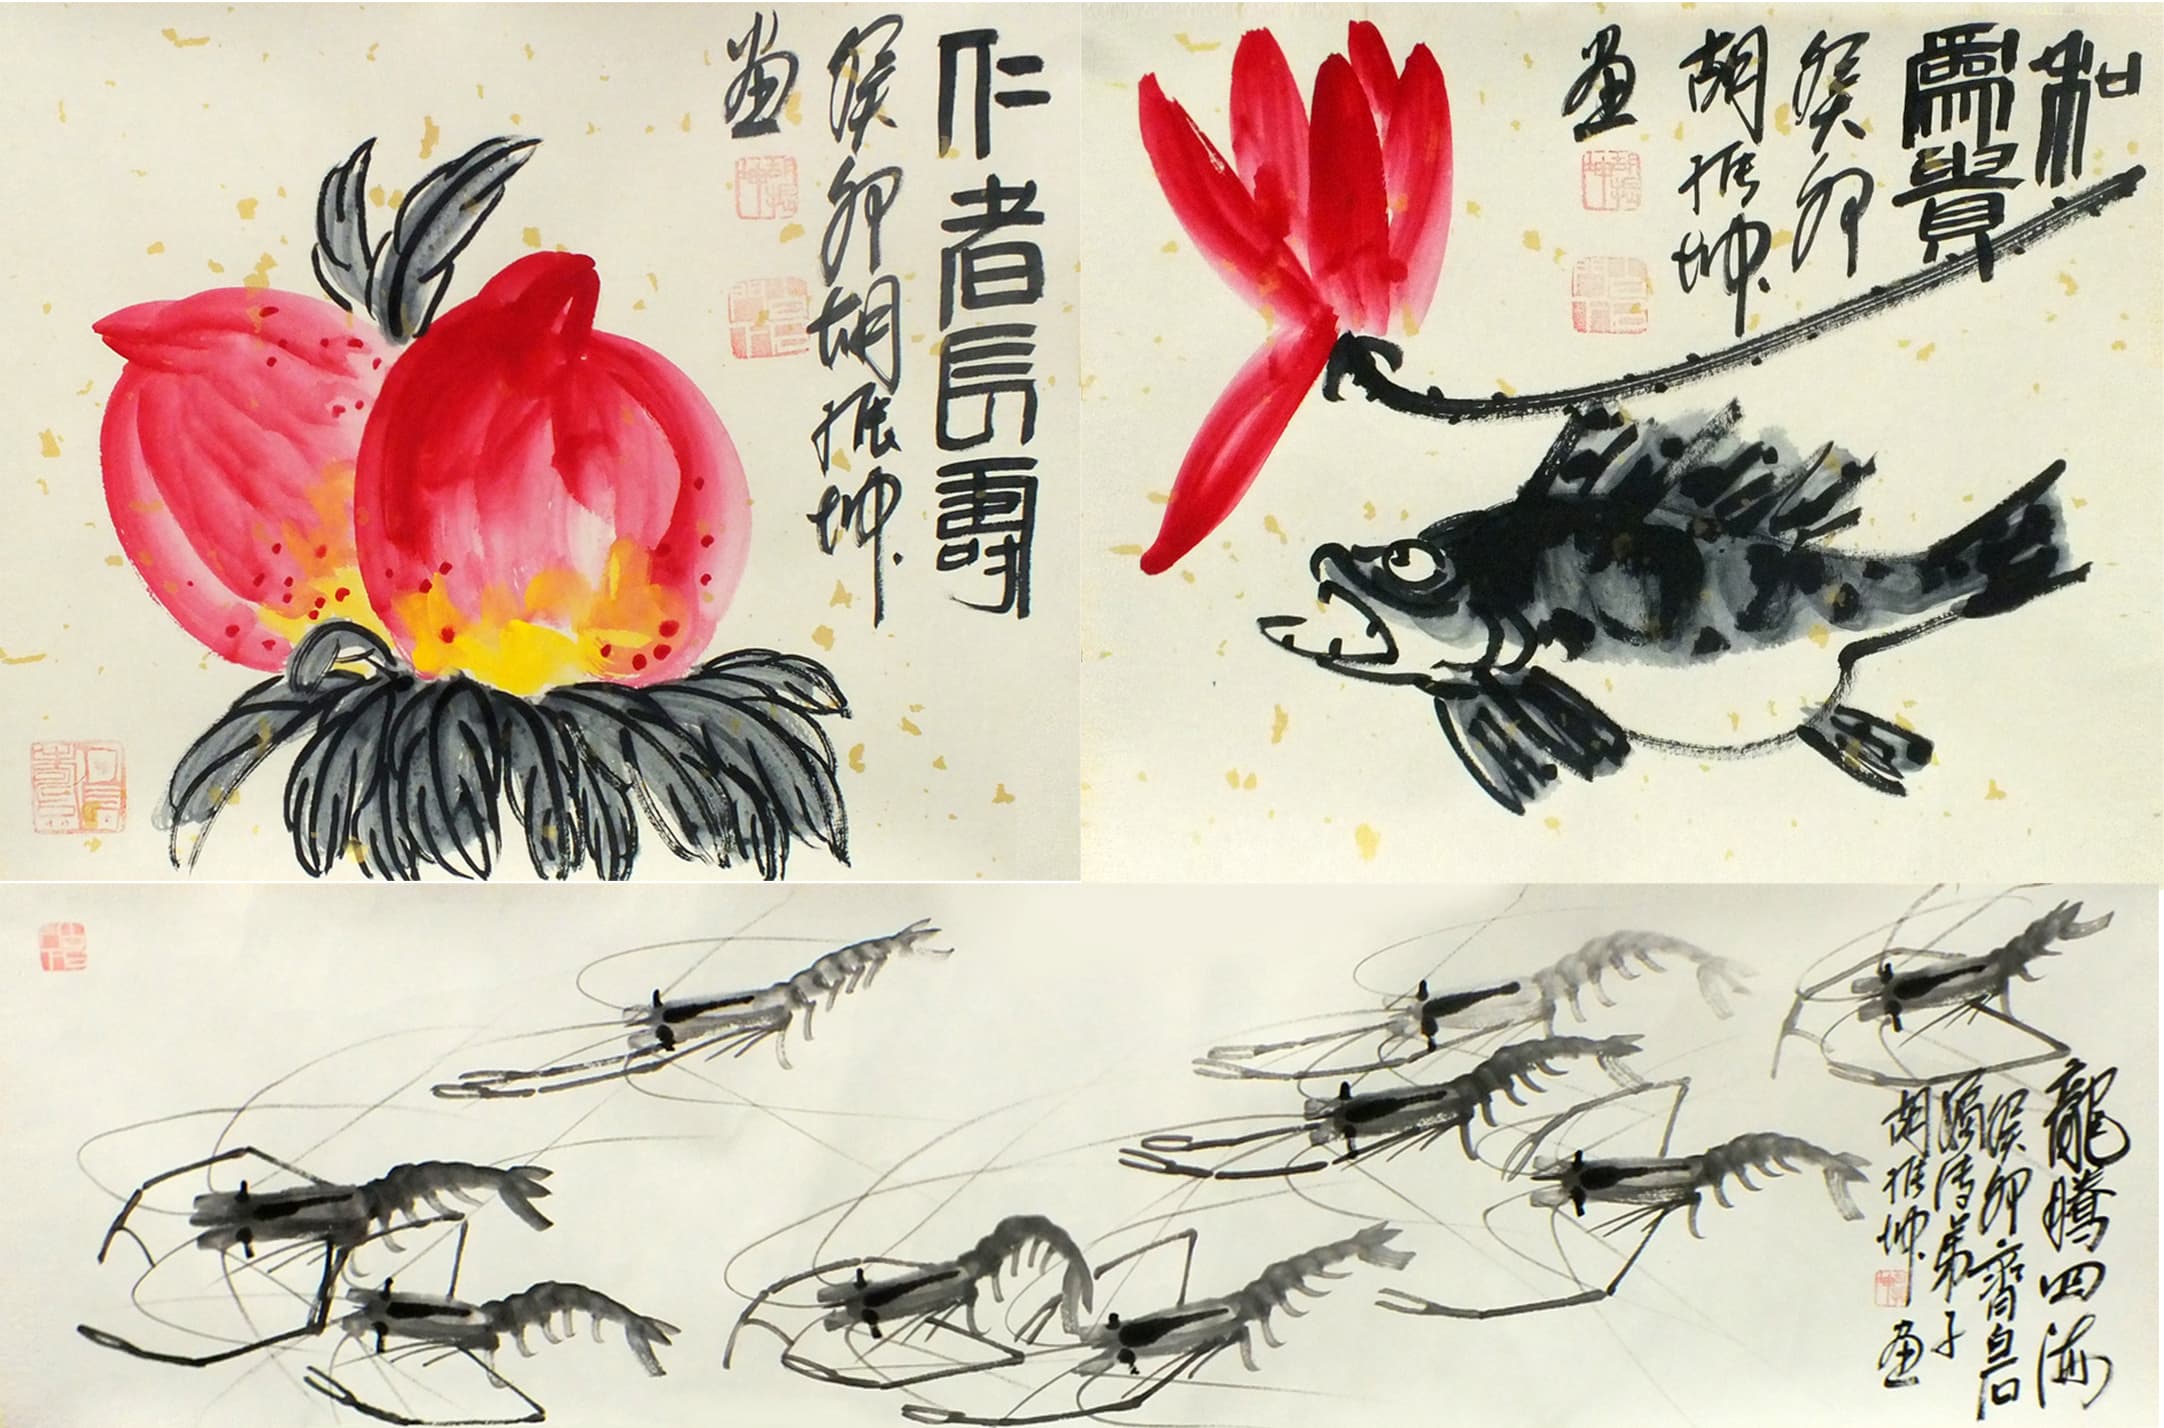 仁者長壽
癸卯胡振坤
画
和
為貴
癸卯
胡振坤
画
龍騰四海
癸卯齊白石
嫡传弟子
胡振坤画